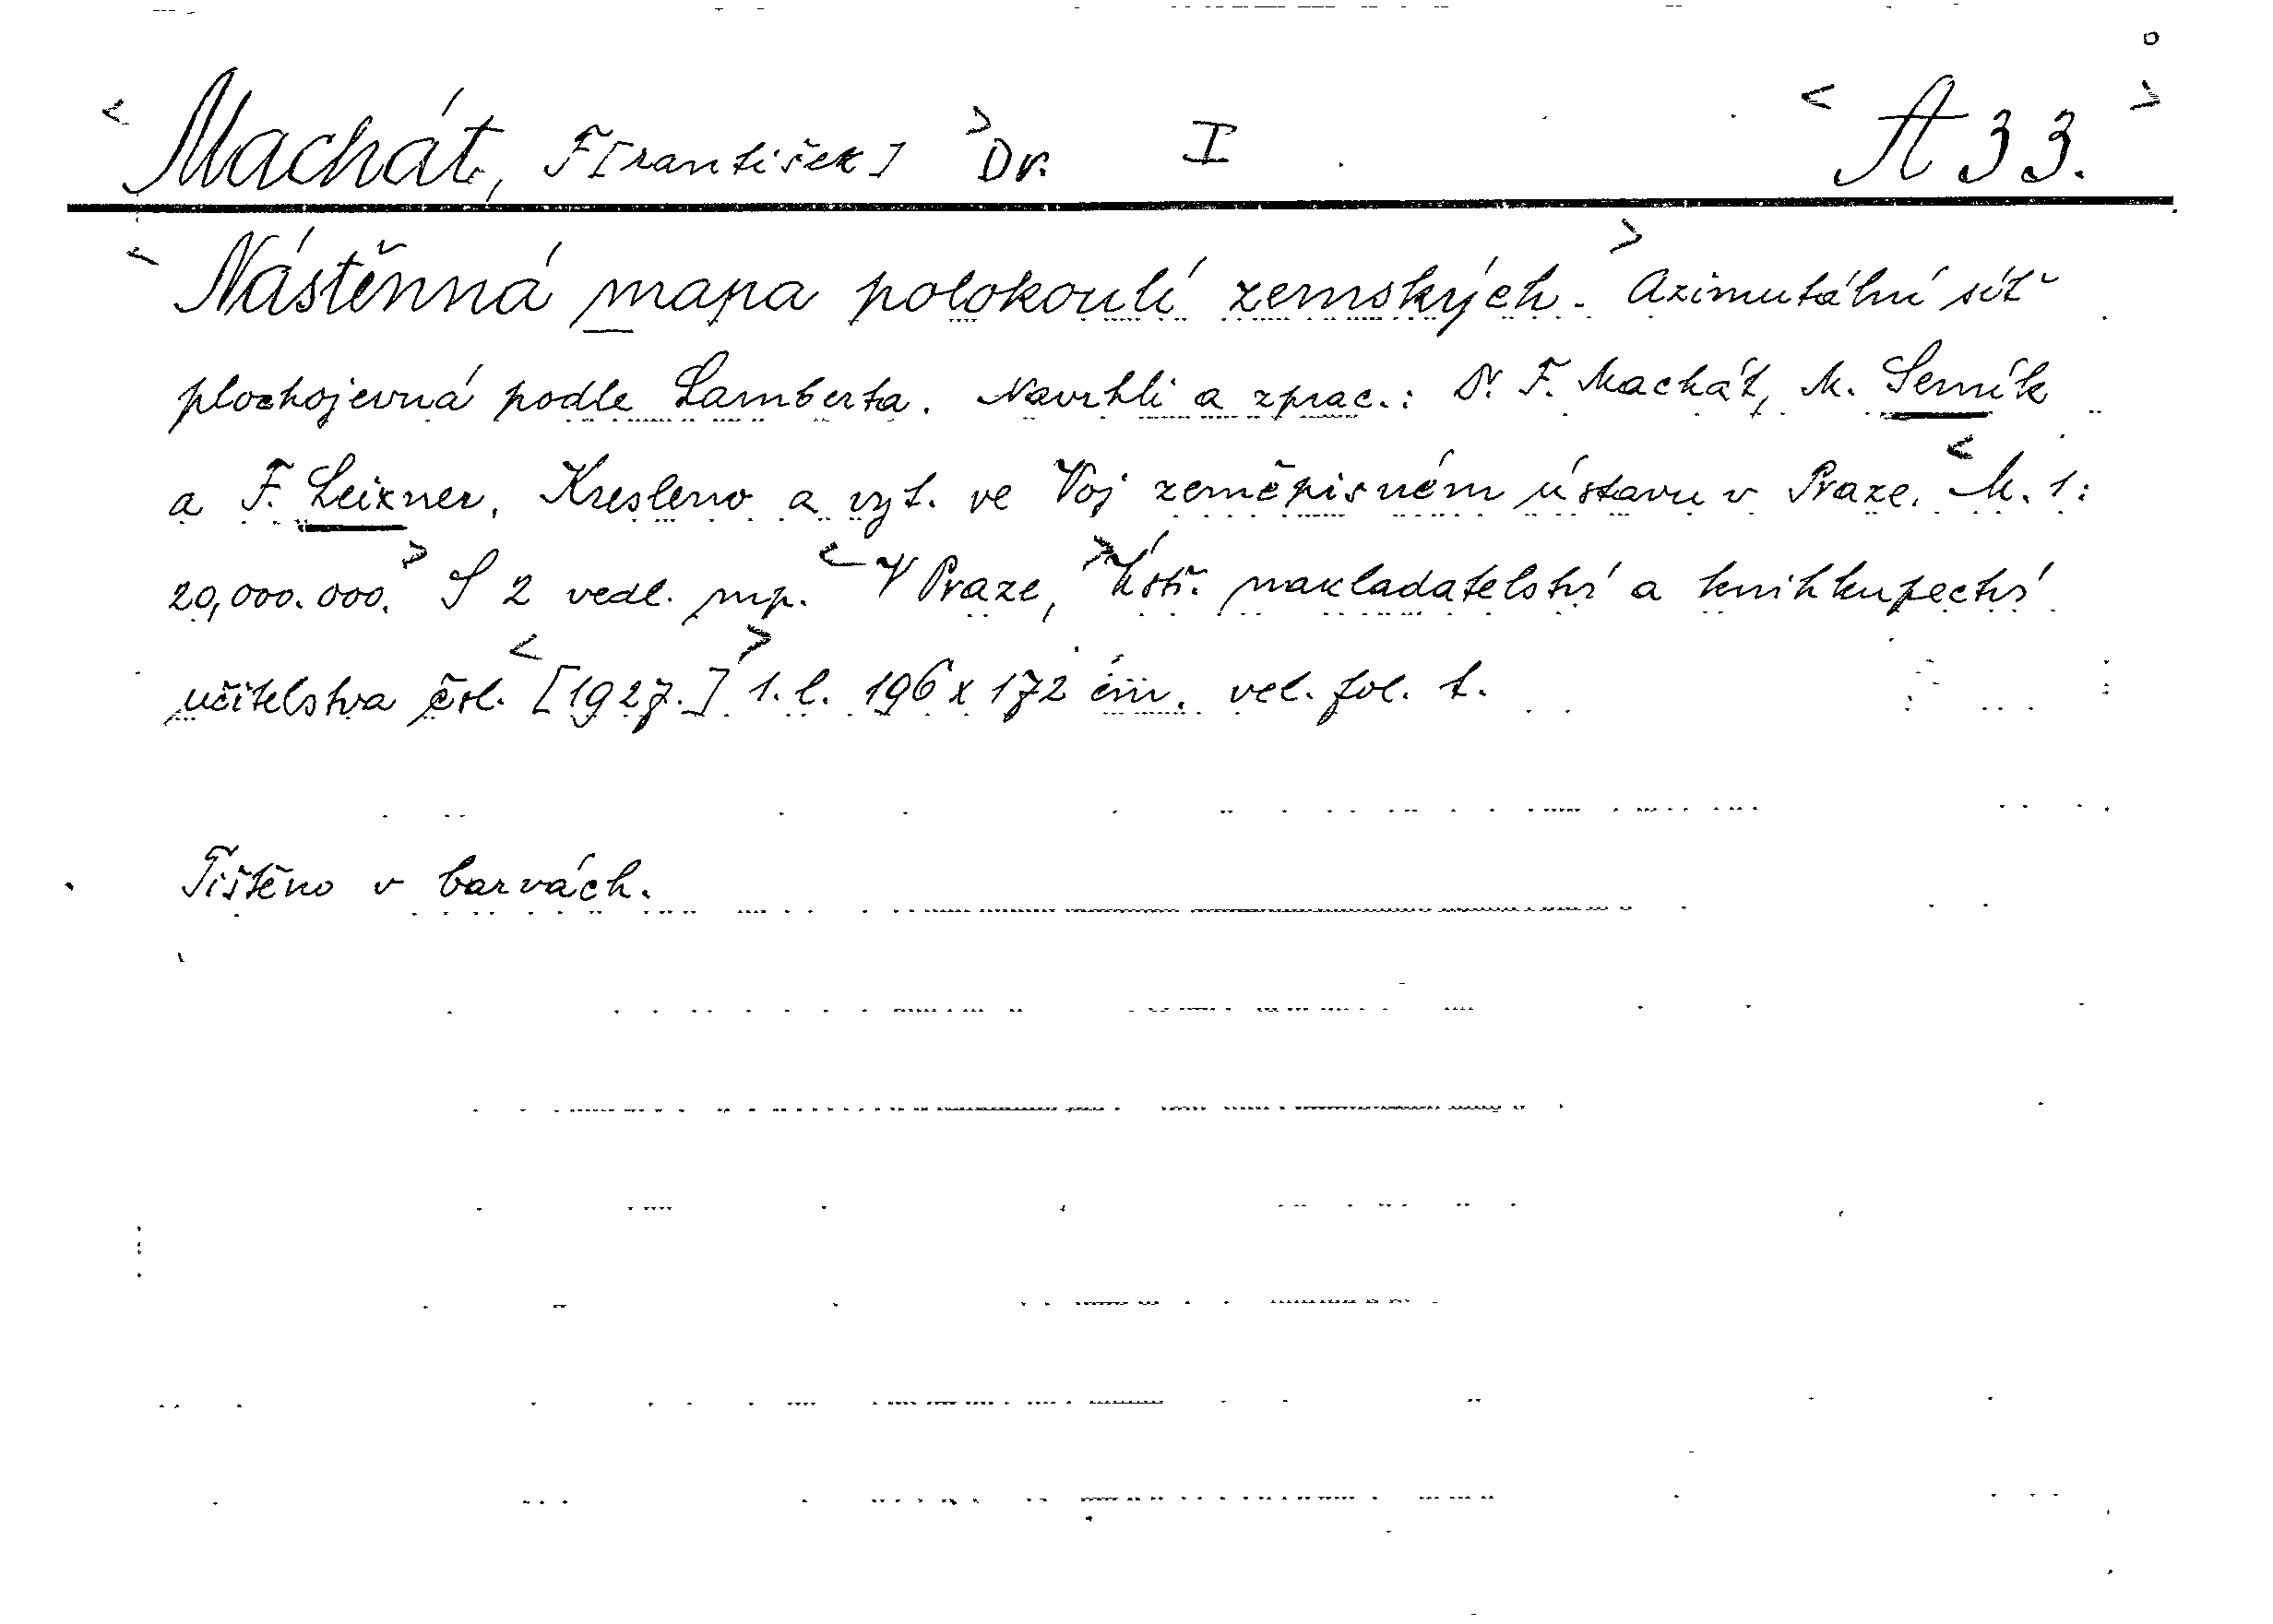 < Machát, F[rantišek] > Dr. I < A 33. >
< Nástěnná mapa polokoulí zemských. > Azimutální síť
plochojevná podle Lamberta. Navrhli a zprac.: Dr. F. Machát, M. Semík
a F. Leixner. Kresleno a vyt. ve Voj zeměpisném ústavu v Praze. < M. 1:
20,000.000. > S 2 vedl. mp. < V Praze, > Ústř. nakladatelství a knihkupectví
učitelstva čsl. < [1927.] > 1. l. 196 x 172 cm. vel. fol. t.
Tištěno v barvách.